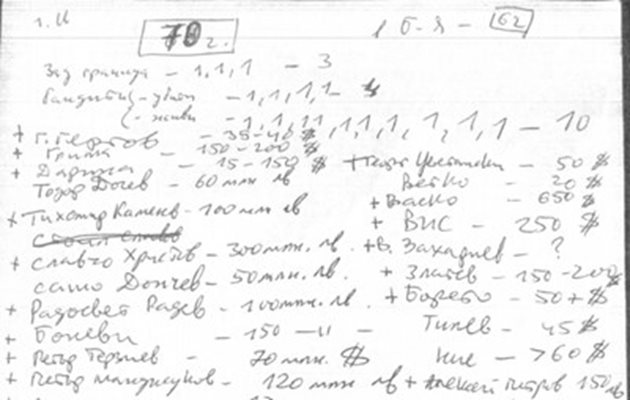 г. И
78 г.
1 б-я – 62
Зад граница – 1,1,1 – 3
Бандити – убити – 1,1,1,1 – 4
– живи – 1,1,11,1,1,1,1,1,1 – 10
+ Г. Гергов – 35-40 $
+ Гриша – 150-200 $
+ Дариша – 15-150 $
Тодор Дочев – 60 млн лв
+ Тихомир Каменов – 100 млн лв
+ Славчо Христов – 300 млн. лв.
Сашо Дончев – 50 млн. лв.
+ Радосвет Радев – 100 млн. лв.
+ Боневи – 150 – 11 –
+ Петър Терзиев – 70 млн. $
+ Петър Манджуков – 120 млн лв
– 50 $
Ветко – 20 $
+ Васко – 650 $
+ ВИС – 250 $
+ В. Захариев – ?
+ Златев – 150-200 $
+ Борето – 50 + $
Тилев – 45 $
Ние – >60 $
+ Алексей Петров 150 лв